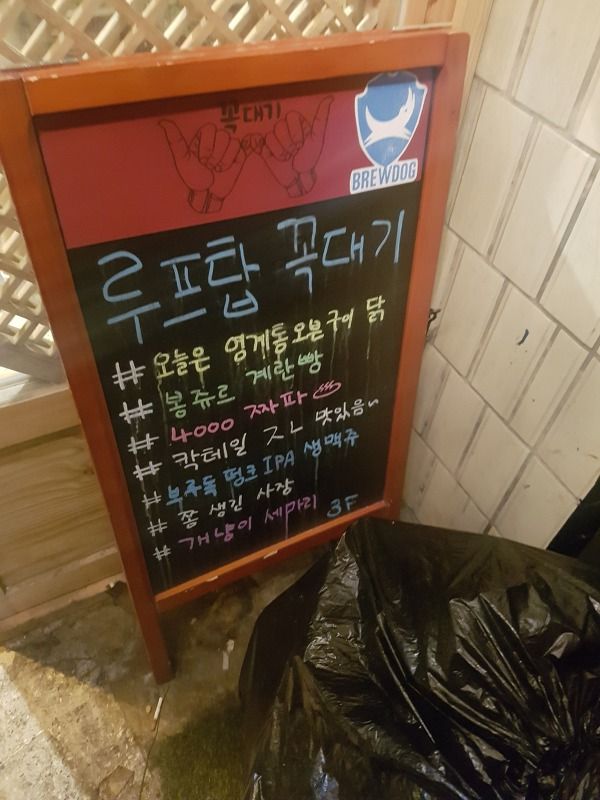 꼭대기
BREWDOG
루프탑 꼭대기
# 오늘은 영계통오븐구이 닭
# 봉쥬르 계란빵
# 4000 짜파
# 칵테일 존 맛있음~
# 부루독 펑크 IPA 생맥주
# 쫌 생긴 사장
# 개냥이 세마리 3F